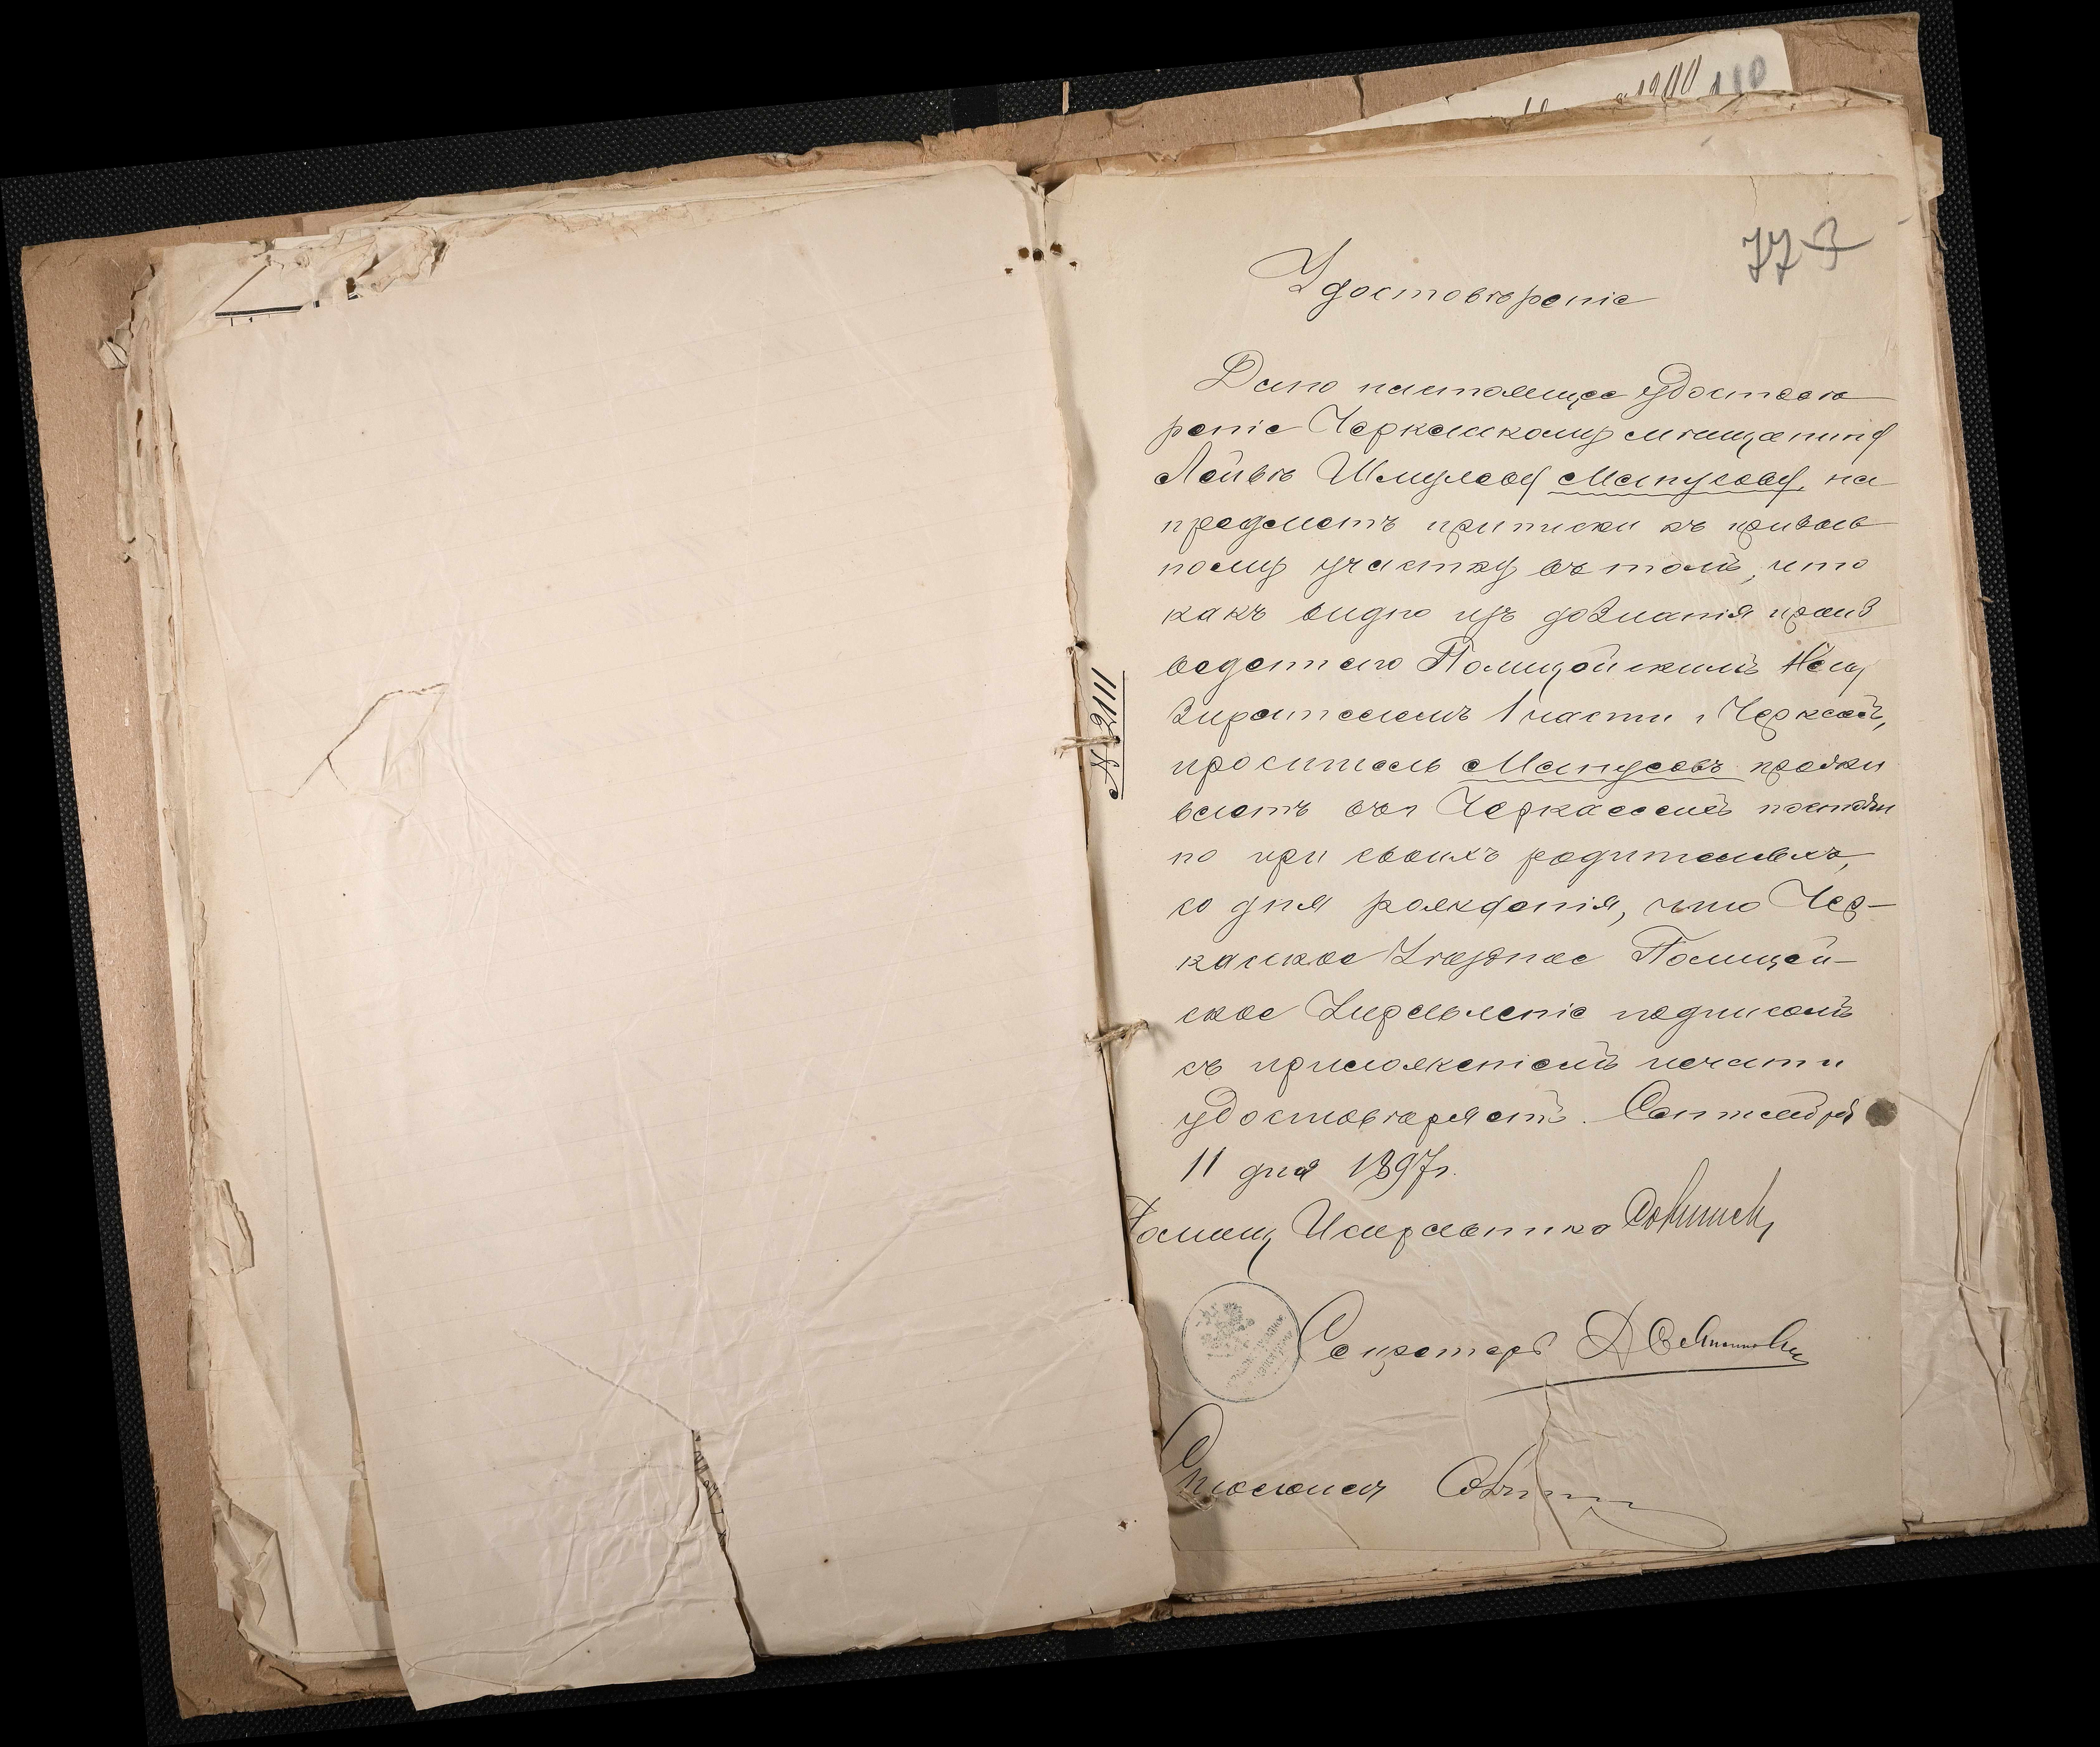 77
Удостовѣреніе
Дано настоящее удостовѣ
реніе Черкасскому мѣщанину
Лейбѣ Шмулеву Манусову, на
предметъ приписки къ призыв
ному участку въ томъ, что
какъ видно изъ дознанія произ
веденнаго Полицейскимъ Над
зирателемъ 1 части г Черкассъ,
проситель Манусовъ прожи
ваетъ въ г Черкассахъ постоян
но при своихъ родителяхъ,
со дня рожденія, что Чер-
касское Уѣздное Полицей-
ское Управленіе подписомъ
съ приложеніемъ печати
удостовѣряетъ. Сентября
11 дня 1897 г.
Помощ Исправника
Секретарь
№ 2111